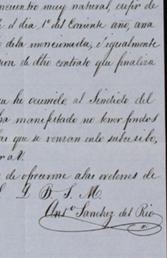 encuentro muy natural, cupir de
el dia 1º del Corriente año, una
dela mencionada, é igualmente
de dho contrato que finaliza
ha ocurrido al Sindicto del
ha manifestado no tener fondos
que se venzan este subsidio,
á V.
de ofrecerme alas ordenes de
Q. B. S. M.
Antº Sanchez del Rio